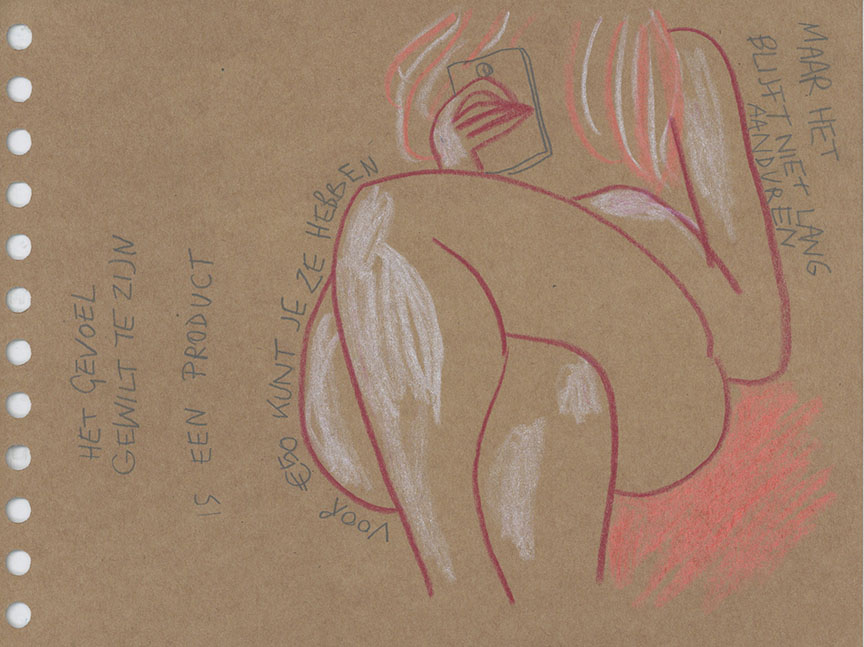 HET GEVOEL
GEWILT TE ZIJN
IS EEN PRODUCT
VOOR €50 KUNT JE ZE HEBBEN
MAAR HET
BLIJFT NIET LANG
AANDUREN